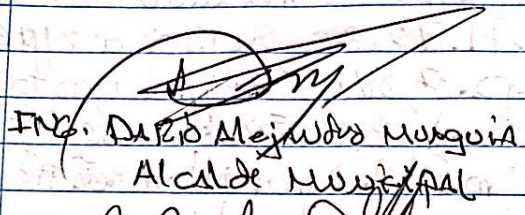 ING. DARIO Alejandro MUNGUIA
Alcalde MUNICIPAL